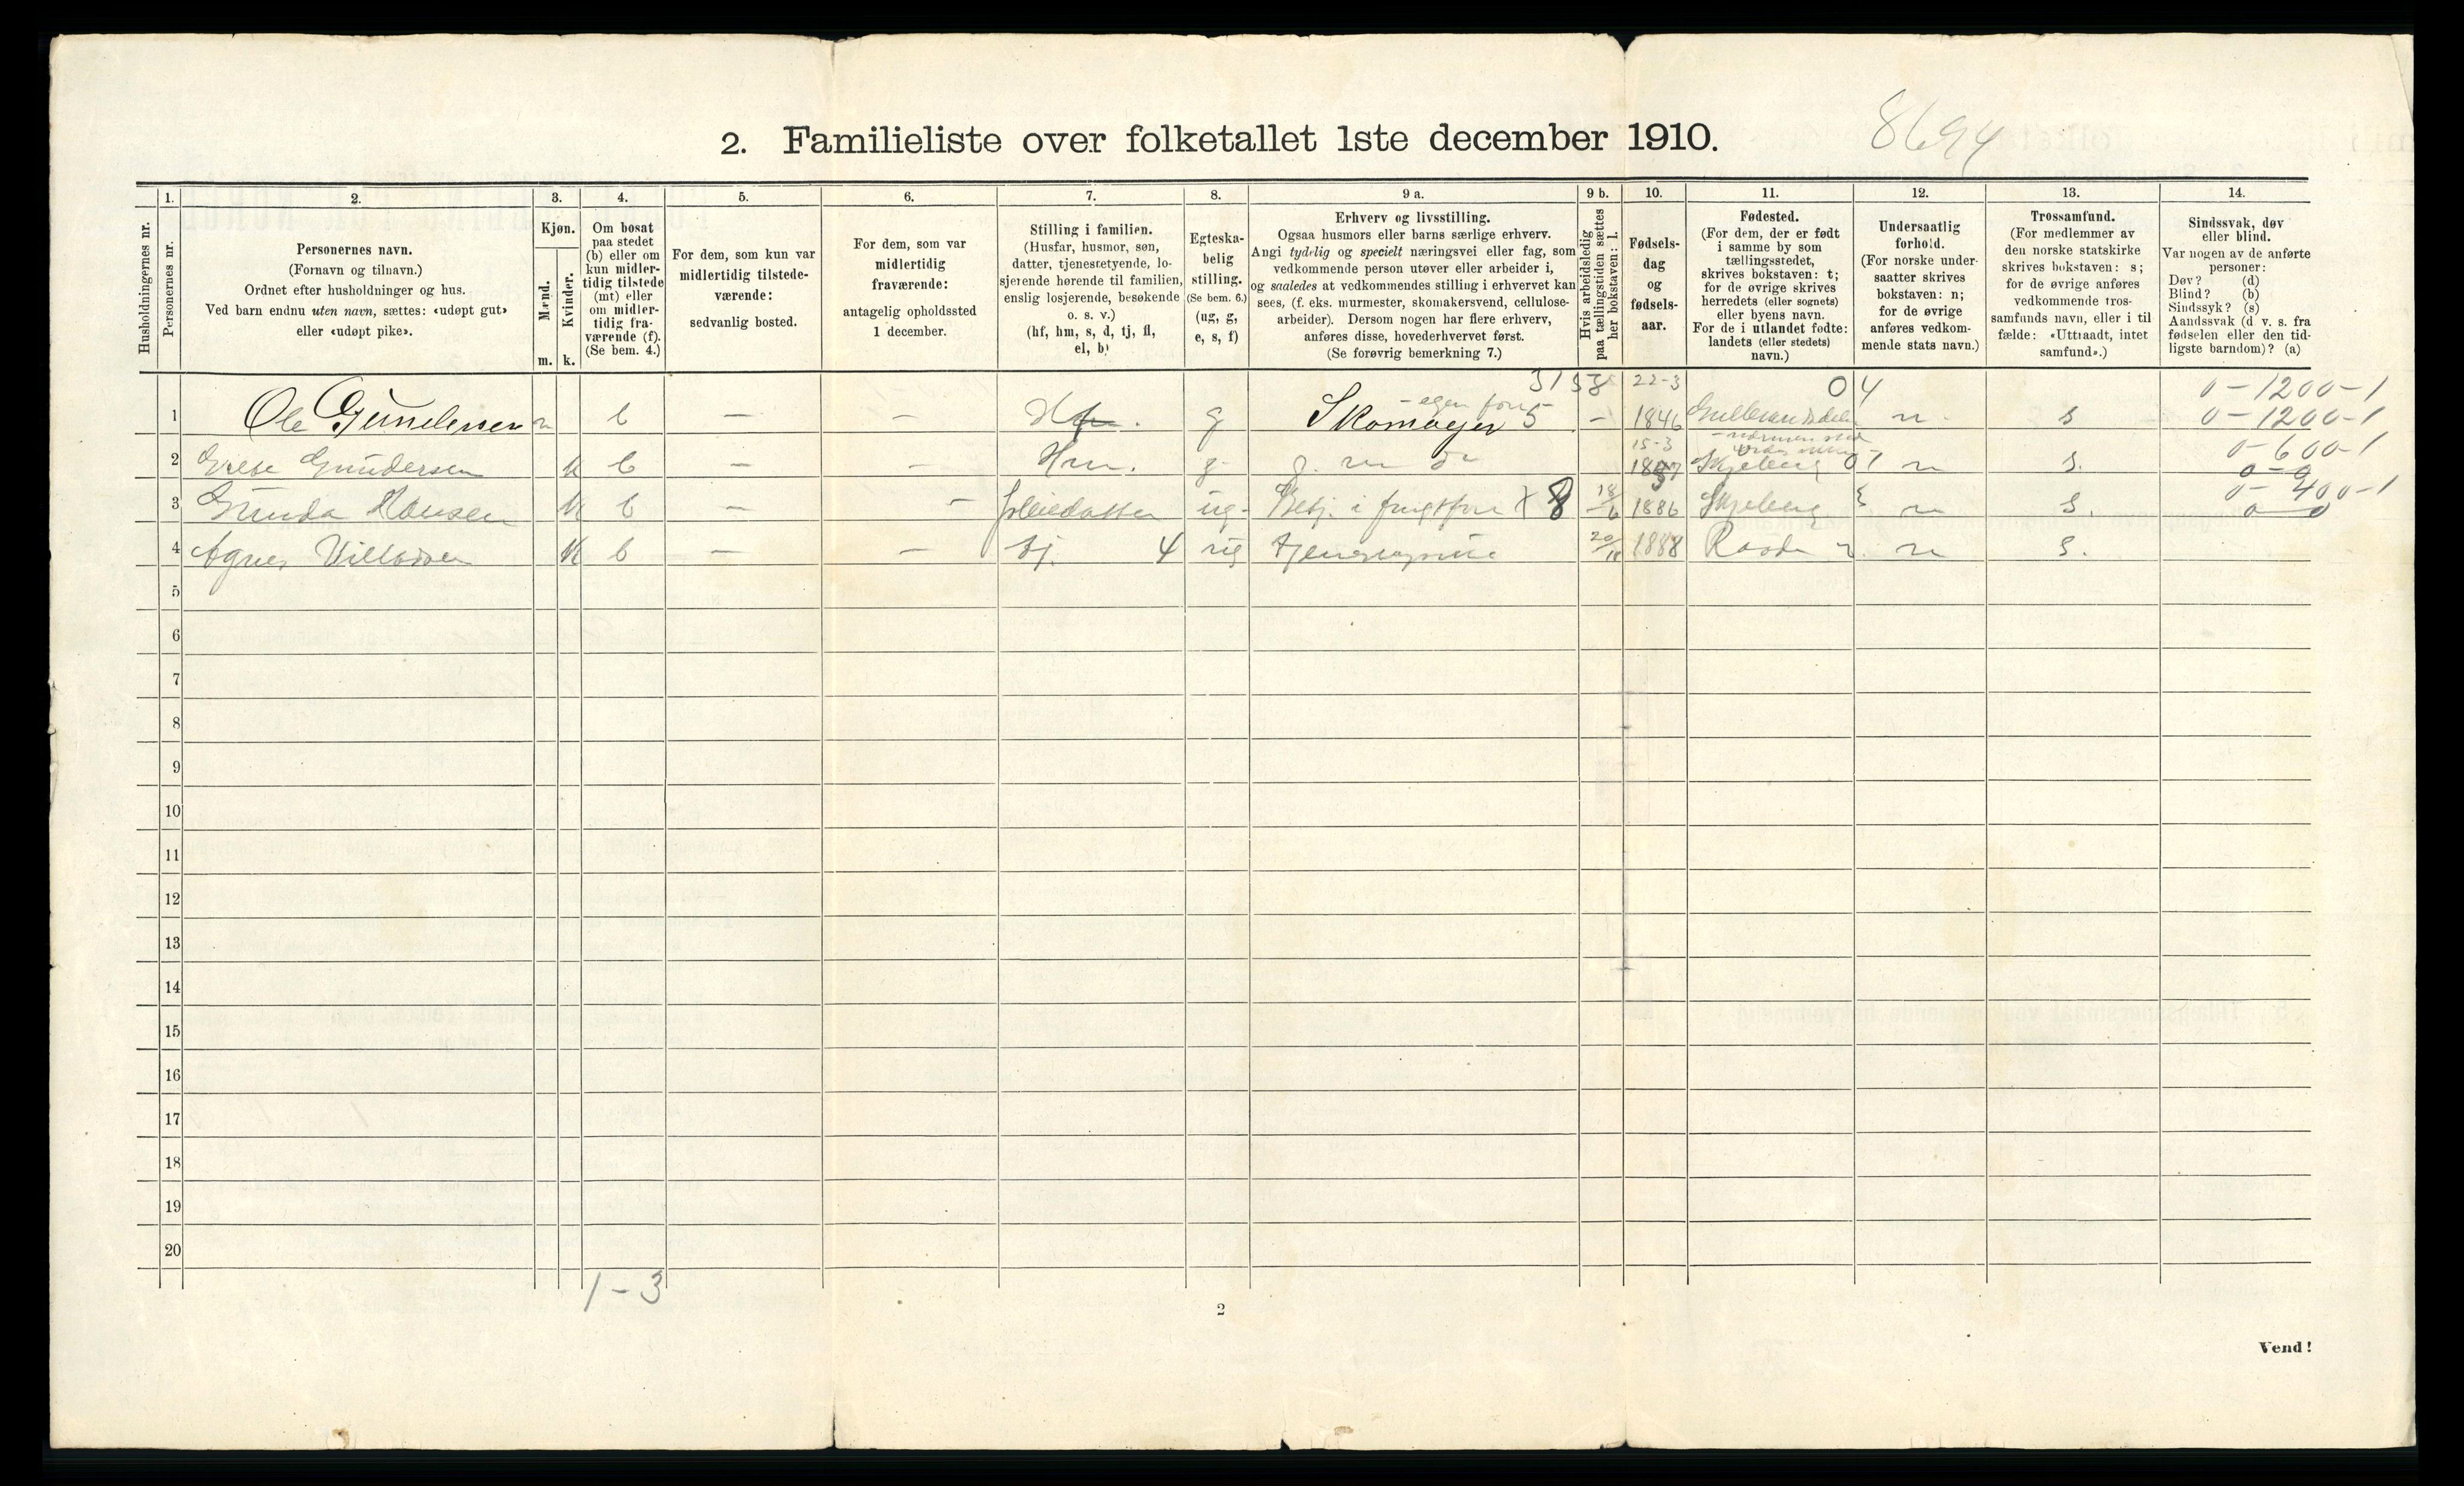 8694
2. Familieliste over folketallet 1ste december 1910.
Husholdningernes nr.
1.
Personernes nr.
2.
Personernes navn.
(Fornavn og tilnavn.)
Ordnet efter husholdninger og hus.
Ved barn endnu uten navn, sættes: «udøpt gut»
eller «udøpt pike».
3.
Kjøn.
Mænd.
m.
Kvinder.
k.
4.
Om bosat
paa stedet
(b) eller om
kun midler-
tidig tilstede
(mt) eller
om midler-
tidig fra-
værende (f).
(Se bem. 4.)
5.
For dem, som kun var
midlertidig tilstede-
værende:
sedvanlig bosted.
6.
For dem, som var
midlertidig
fraværende:
antagelig opholdssted
1 december.
7.
Stilling i familien.
(Husfar, husmor, søn,
datter, tjenestetyende, lo-
sjerende hørende til familien,
enslig losjerende, besøkende
o. s. v.)
(hf, hm, s, d, tj, fl,
el, b)
8.
Egteska-
belig
stilling.
(Se bem. 6.)
(ug, g,
e, s, f)
9 a.
Erhverv og livsstilling.
Ogsaa husmors eller barns særlige erhverv.
Angi tydelig og specielt næringsvei eller fag, som
vedkommende person utøver eller arbeider i,
og saaledes at vedkommendes stilling i erhvervet kan
sees, (f. eks. murmester, skomakersvend, cellulose-
arbeider). Dersom nogen har flere erhverv,
anføres disse, hovederhvervet først.
(Se forøvrig bemerkning 7.)
9 b.
Hvis arbeidsledig
paa tællingstiden sættes
her bokstaven: l.
10.
Fødsels-
dag
og
fødsels-
aar.
11.
Fødested.
(For dem, der er født
i samme by som
tællingsstedet,
skrives bokstaven: t;
for de øvrige skrives
herredets (eller sognets)
eller byens navn.
For de i utlandet fødte:
landets (eller stedets)
navn.)
12.
Undersaatlig
forhold.
(For norske under-
saatter skrives
bokstaven: n;
for de øvrige
anføres vedkom-
mende stats navn.)
13.
Trossamfund.
(For medlemmer av
den norske statskirke
skrives bokstaven: s;
for de øvrige anføres
vedkommende tros-
samfunds navn, eller i til
fælde: «Uttraadt, intet
samfund».)
14.
Sindssvak, døv
eller blind.
Var nogen av de anførte
personer:
Døv? (d)
Blind? (b)
Sindssyk? (s)
Aandssvak (d v. s. fra
fødselen eller den tid-
ligste barndom)? (a)
22-3 04 0-1200-1
1 Ole Gundersen m b — — g Skomager 5 – 1846 n s 0-1200-1
15-3 0-600-1
2 Gundersen k b — — Hm. g. Skjeberg 01 n s. 0-0
3 Gunda Hansen k b — — ug. 8 18/6 1886 Skjeberg n s. 0-400-1
4 Agnes k b — — tj. 4 ug 1888 Raade n s.
5
6
7
8
9
10
11
12
13
14
15
16
17
18
19
20
1-3
2
Vend!